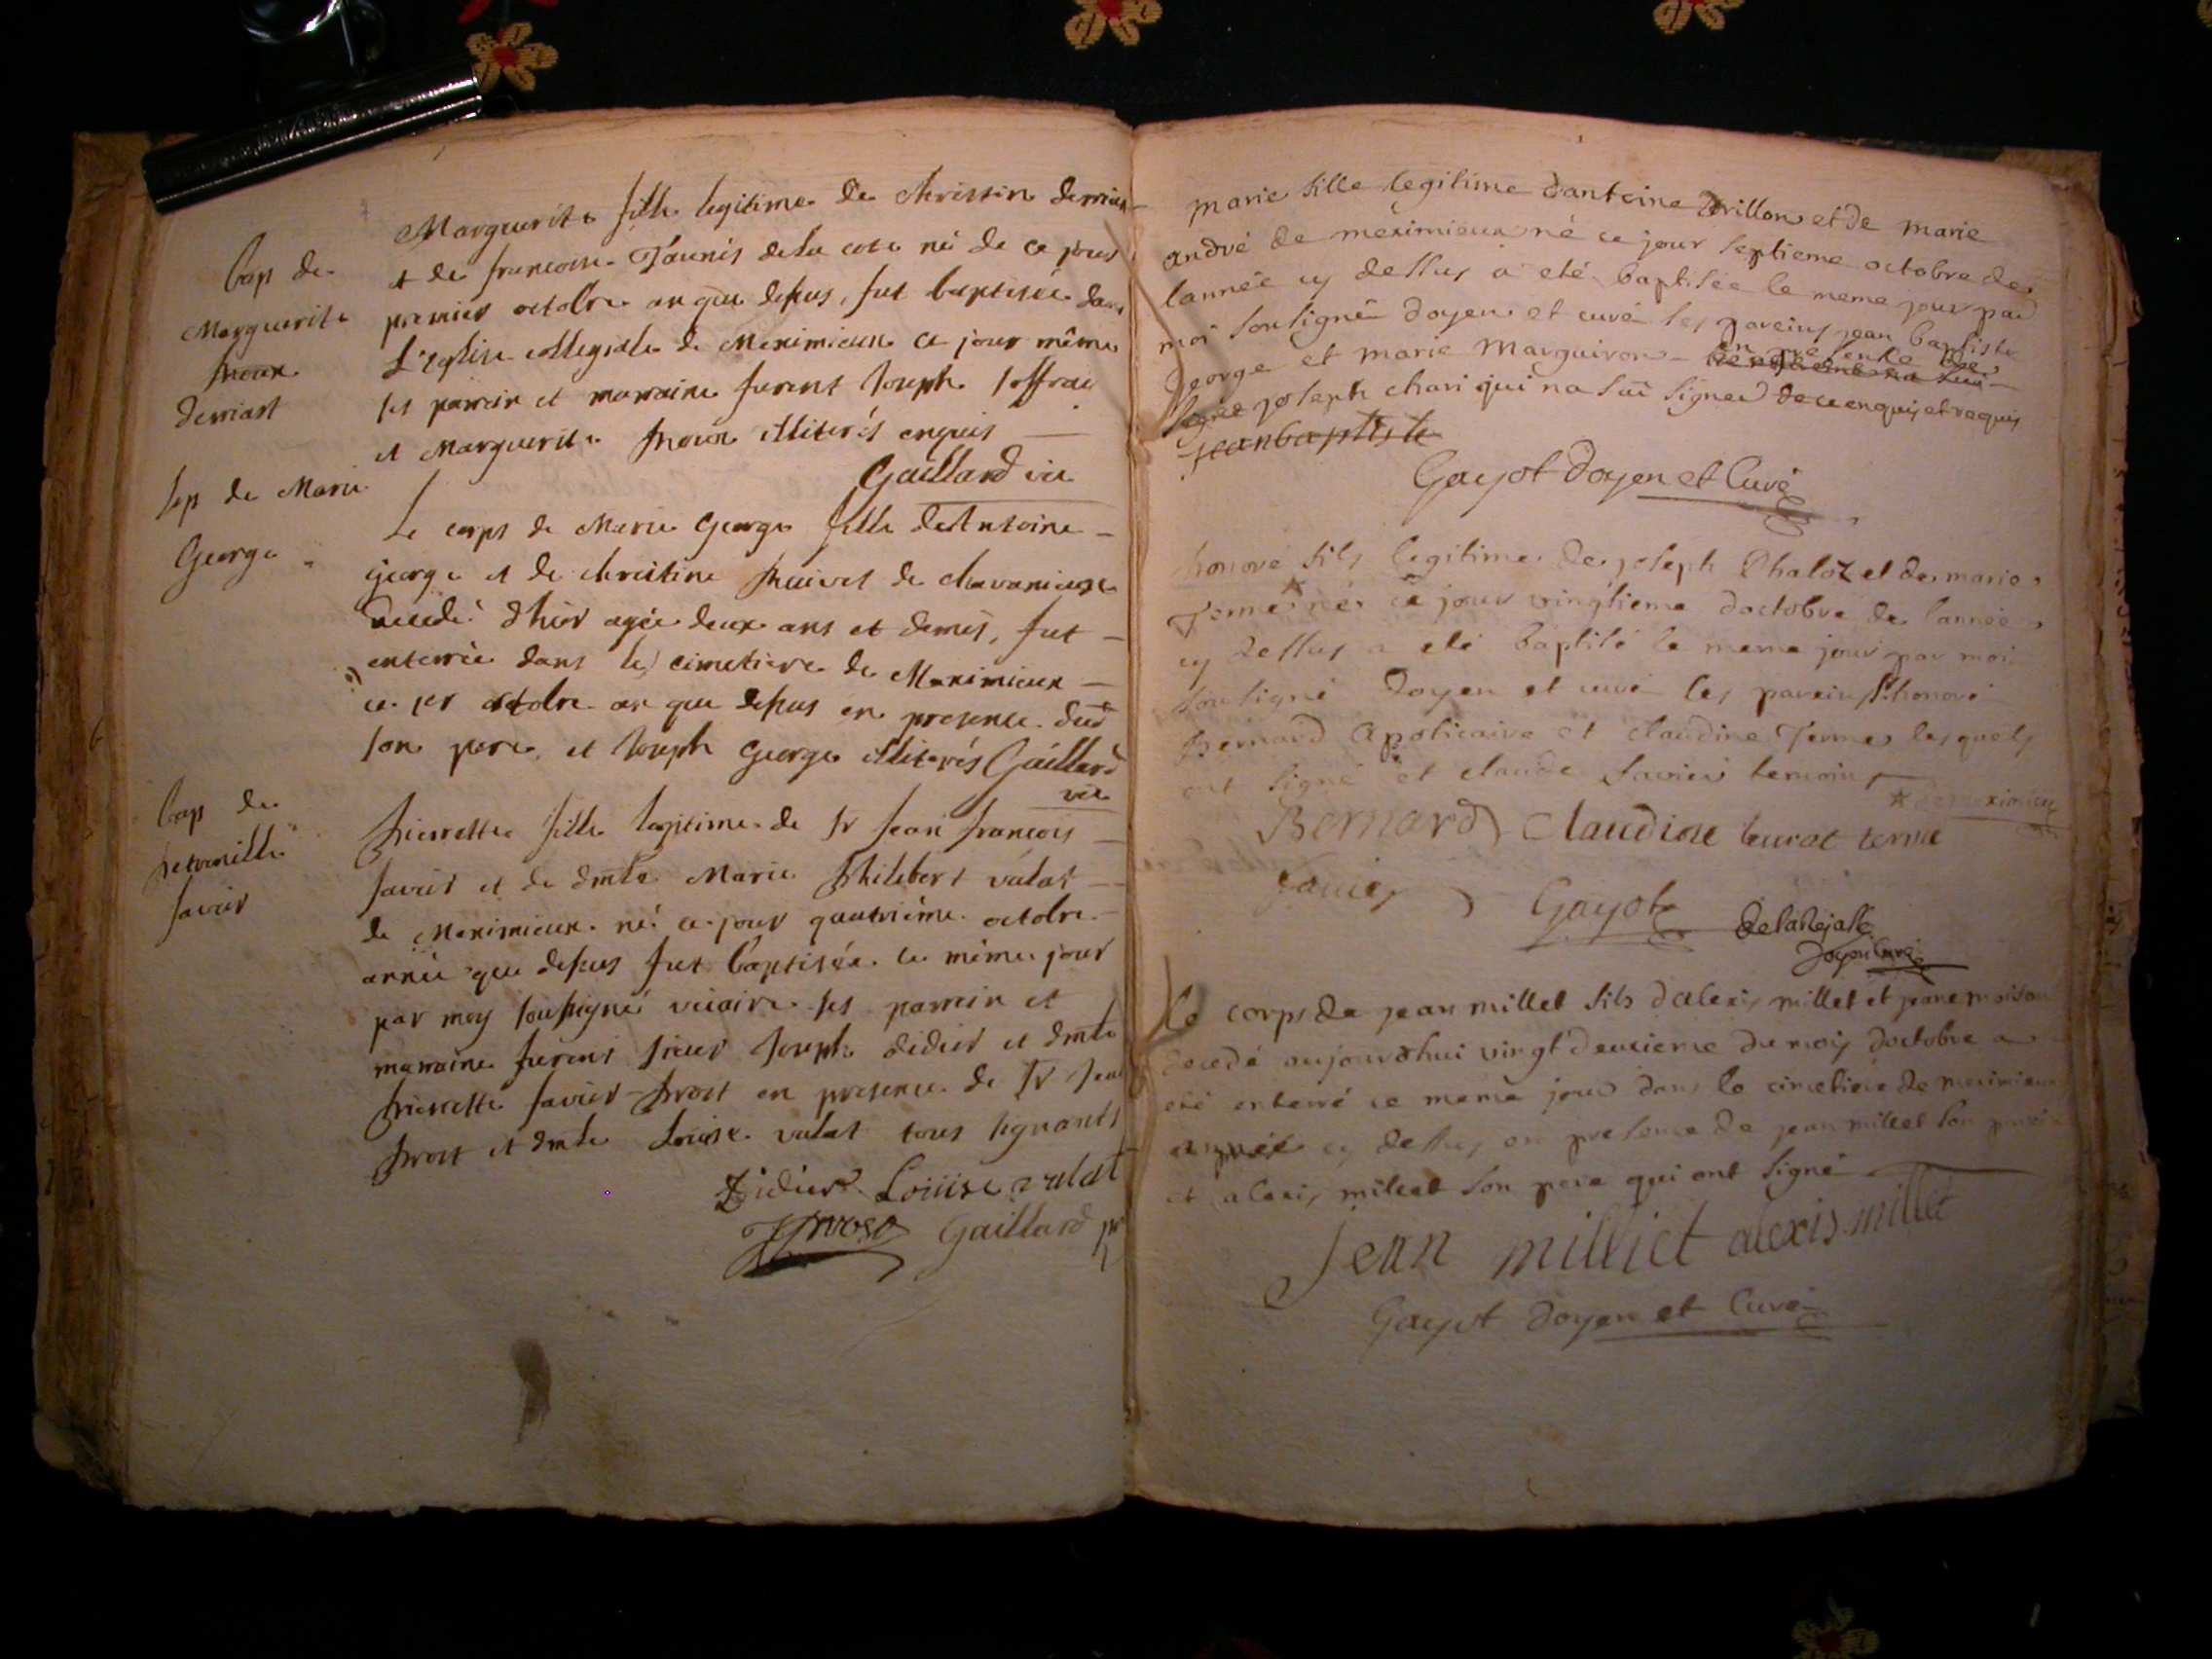 Bap de
Marguerite
derriast
Marguerite fille legitime de christin derriast
et de francoise de la cote né de ce jour
premier octobre an que dessus, fut baptisée dans
L'eglise collegiale de Meximieux ce jour même
ses parrain et marraine furent Joseph Joffray
et Marguerite illiterés enquis
Gaillard vic
Sep de Marie
George
Le corps de Marie George fille de Antoine
George et de christine de chavanieux
decedé d'hier agée deux ans et demis, fut
enterrée dans le cimetiere de Meximieux
ce 1er octobre an que dessus en presence dud
son pere et Joseph George illiterés Gaillard
vic
Bap de
Savier
Pierrette fille legitime de Sr Jean francois
Savier et de dmlle Marie Philibert valat
de Meximieux né ce jour quatrième octobre
année que dessus fut baptisée ce même jour
par moy soussigné vicaire ses parrein et
marraine furent sieur Joseph didier et dmlle
Pierrette Savier Prost en presence de Sr Jean
Prost et dmlle Louise valat tous signants
Didier Louise valat
JProst Gaillard
marie fille legitime dantoine Drillon et de marie
andré de meximieux né ce jour septieme octobre de
lannée cy dessus a eté baptisée le meme jour par
moi soussigné doyen et curé les pareins jean baptiste
george et marie Marguiron en presence de
joseph chari qui na sai signer de ce enquis et requis
jeanbaptiste
Gayot doyen et Curé
honoré fils legitime de joseph Chaloz et de marie
Terme né ce jour vingtieme doctobre de lannée
cy dessus a eté baptisé le meme jour par moi
soussigné doyen et curé les pareins Sr honoré
Bernard Apoticaire et claudine Terme lesquels
ont signé et claude Savier temoin
* de meximieux
Bernard Claudine terme
Savier Gayot Delarejasse
Doyen Curé
Le corps de jean millet fils dalexis millet et jeane moison
decedé aujourdhui vingt deuxieme du mois doctobre a
eté enterré ce meme jour dans le cimetiere de meximieux
année cy dessus en presence de jean millet son
et alexis millet son pere qui ont signé
Jean milliet alexis millet
Gayot doyen et Curé